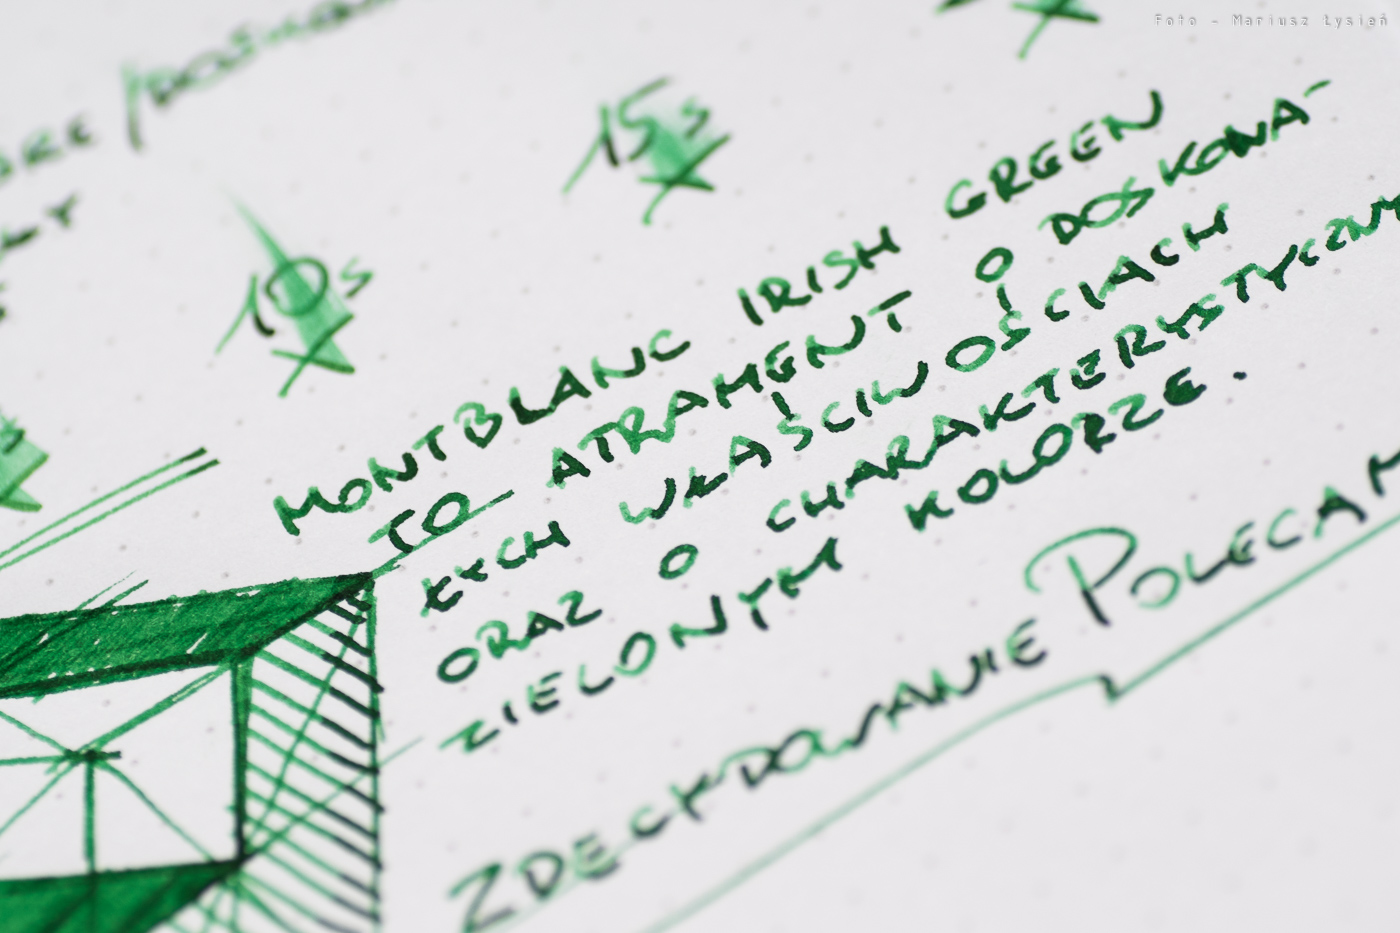 Foto - Mariusz Łysień
15s
10s
MONTBLANC IRISH GREEN
TO ATRAMENT O DOSKONA-
ŁYCH WŁAŚCIWOŚCIACH
ORAZ O CHARAKTERYSTYCZNY
ZIELONYM KOLORZE.
ZDECYDOWANIE POLECAM